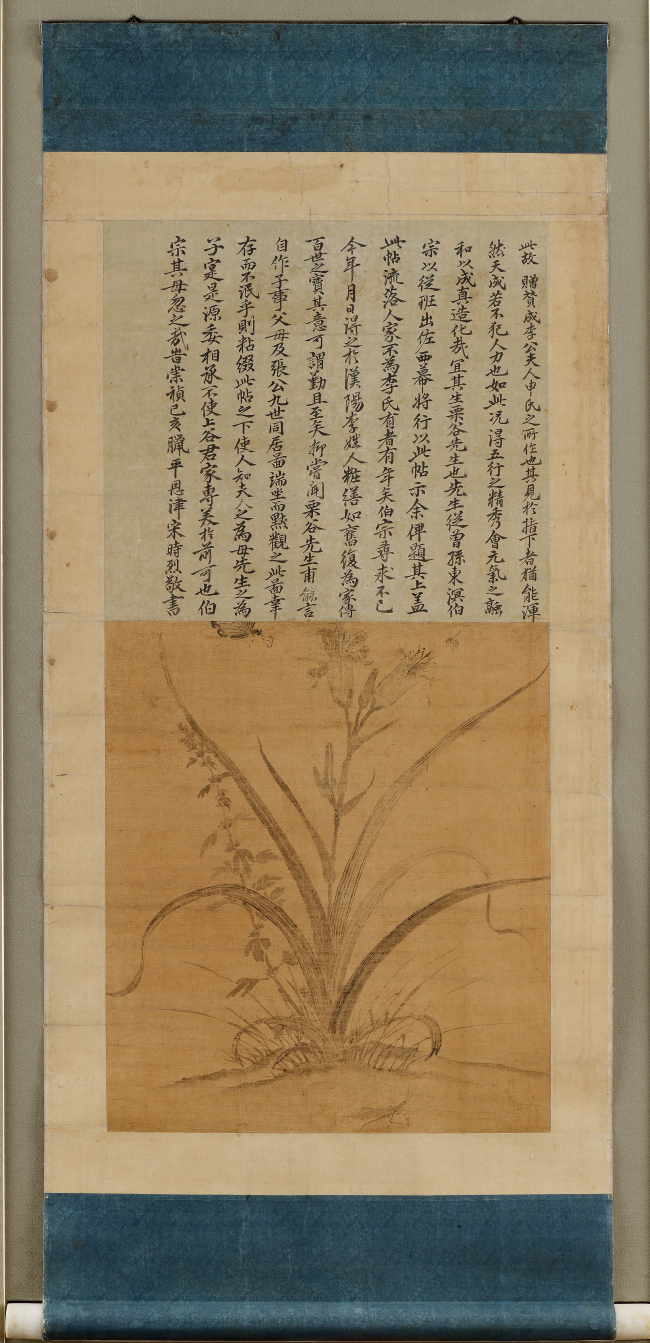 此故 贈贊成李公夫人申氏之所作也其見於指下者猶能渾
然天成若不犯人力也如此况得五行之精秀會元氣之融
和以成真造化哉宜其生栗谷先生也先生從曾孫東溟伯
宗以從班出佐西幕將行以此帖示余俾題其上盖
此帖流落人家不為李氏有者有年矣伯宗尋求不已
今年月日得之於漢陽李姓人粧繕如舊復為家傳
百世之寶其意可謂勤且至矣抑嘗聞栗谷先生甫能言
自作子事父母及張公九世同居啚端坐而默觀之此啚幸
存而不泯乎則粘綴此帖之下使人知夫人之為母先生之為
子寔是源委相承不使上谷君家專美於前可也伯
宗其毋忽之哉旹崇禎己亥臘平恩津宋時烈敬書